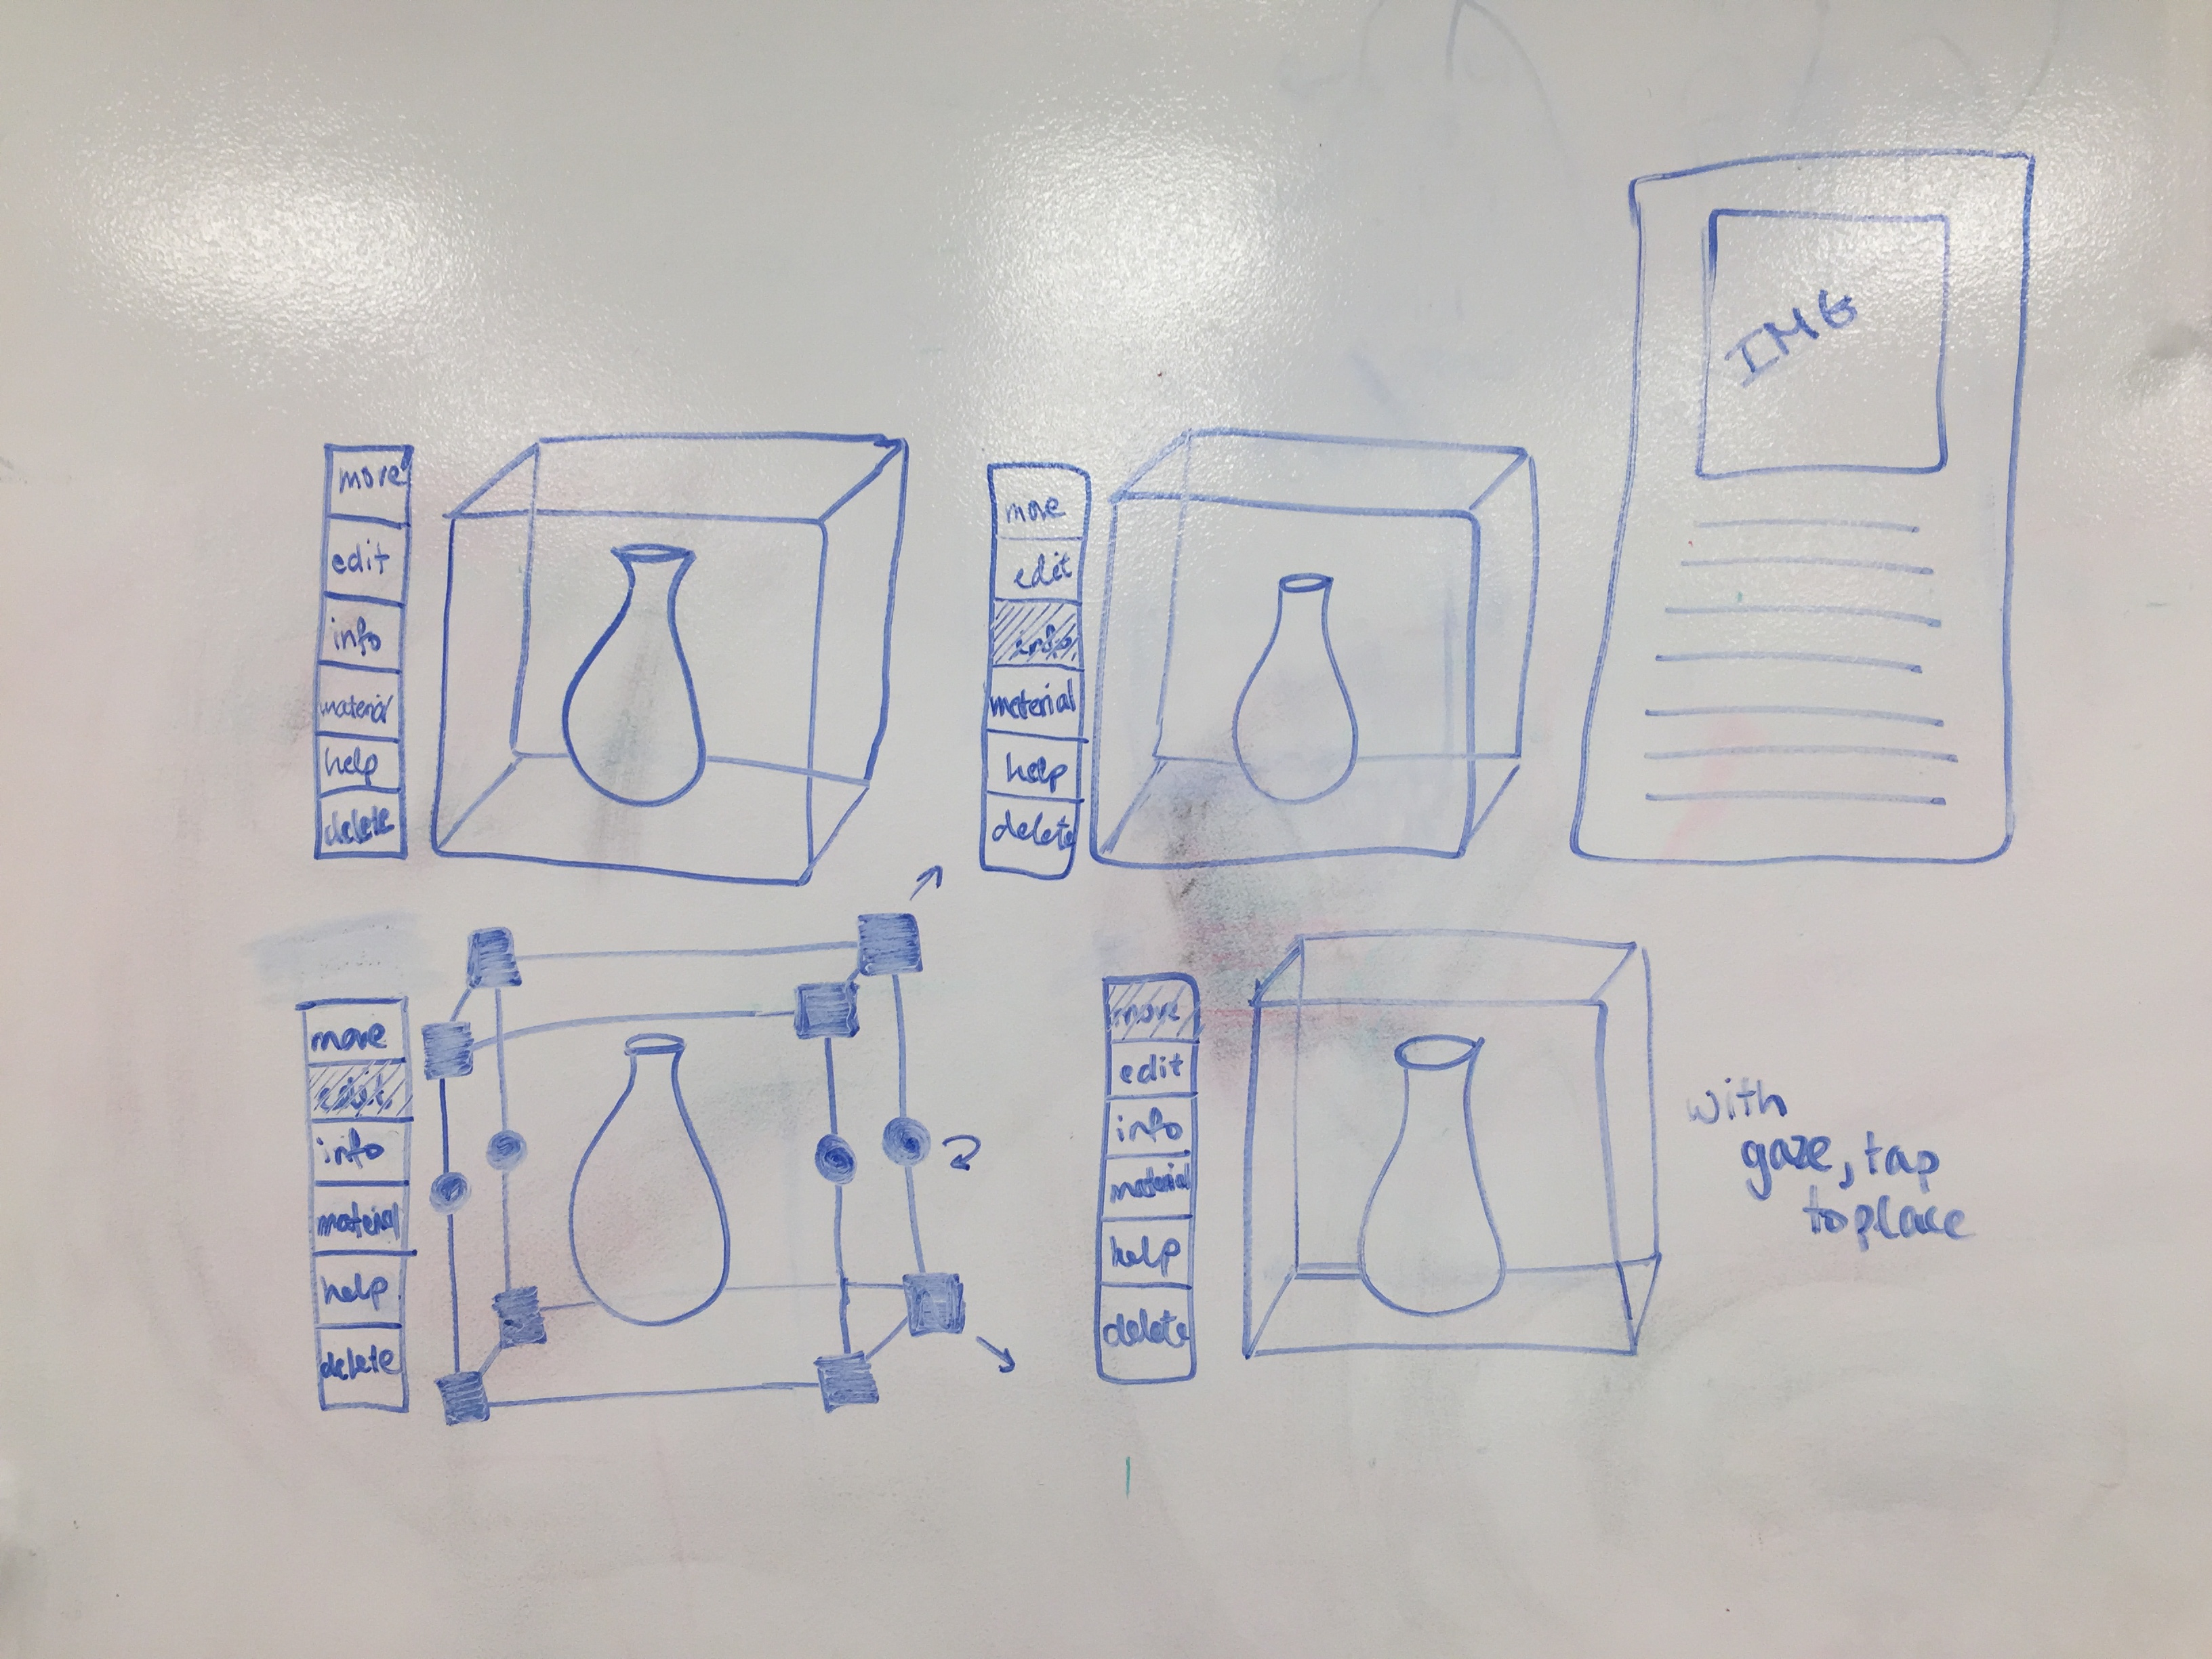 move
edit
info
material
help
delete
move
edit
info
material
help
delete
IMG
move
edit
info
material
help
delete
move
edit
info
material
help
delete
with
gaze, tap
to place